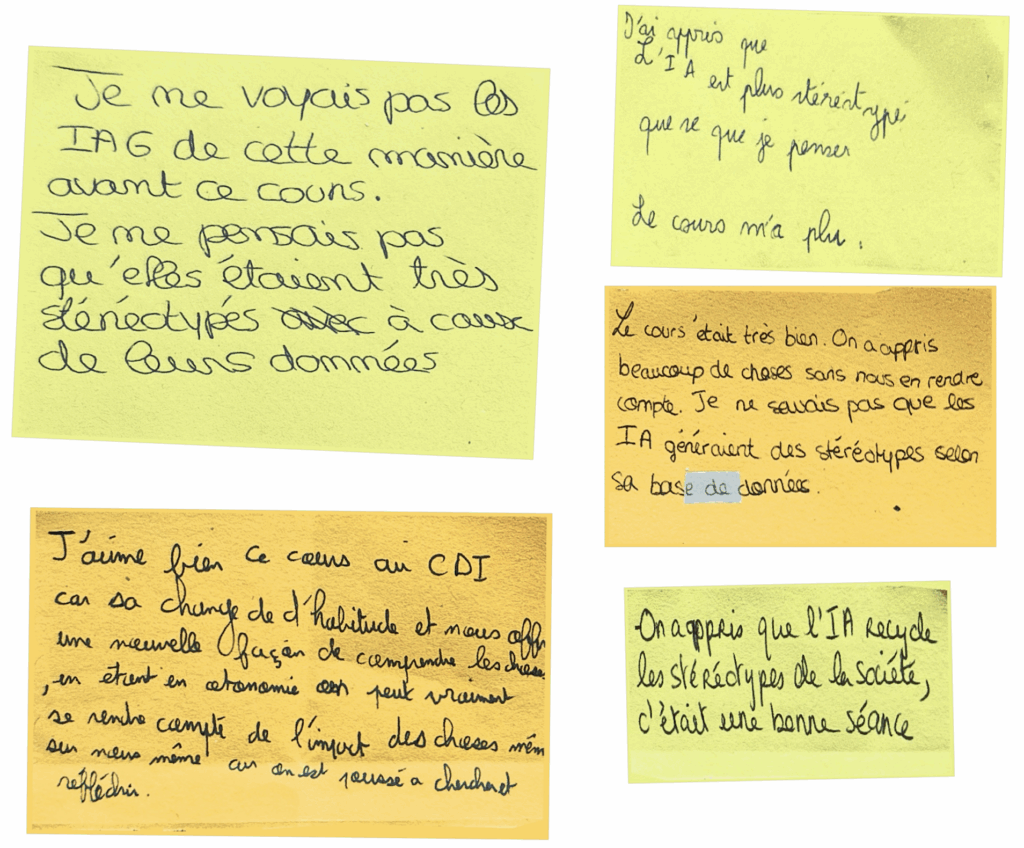 Je me voyais pas les
IAG de cette manière
avant ce cours.
Je me pensais pas
qu'elles étaient très
stéréotypés à cause
de leurs données
J'ai appris que
L'IA est plus stéréotypé
que ce que je penser
Le cours m'a plu.
Le cours était très bien. On a appris
beaucoup de choses sans nous en rendre
compte. Je ne savais pas que les
IA généraient des stéréotypes selon
sa base de données.
J'aime bien ce cours au CDI
car sa change de d'habitude et nous offre
une nouvelle façon de comprendre les choses
, en étant en autonomie on peut vraiment
se rendre compte de l'impact des choses même
sur nous même car on est poussé a chercher et
réfléchir.
On a appris que l'IA recycle
les stéréotypes de la société,
c'était une bonne séance